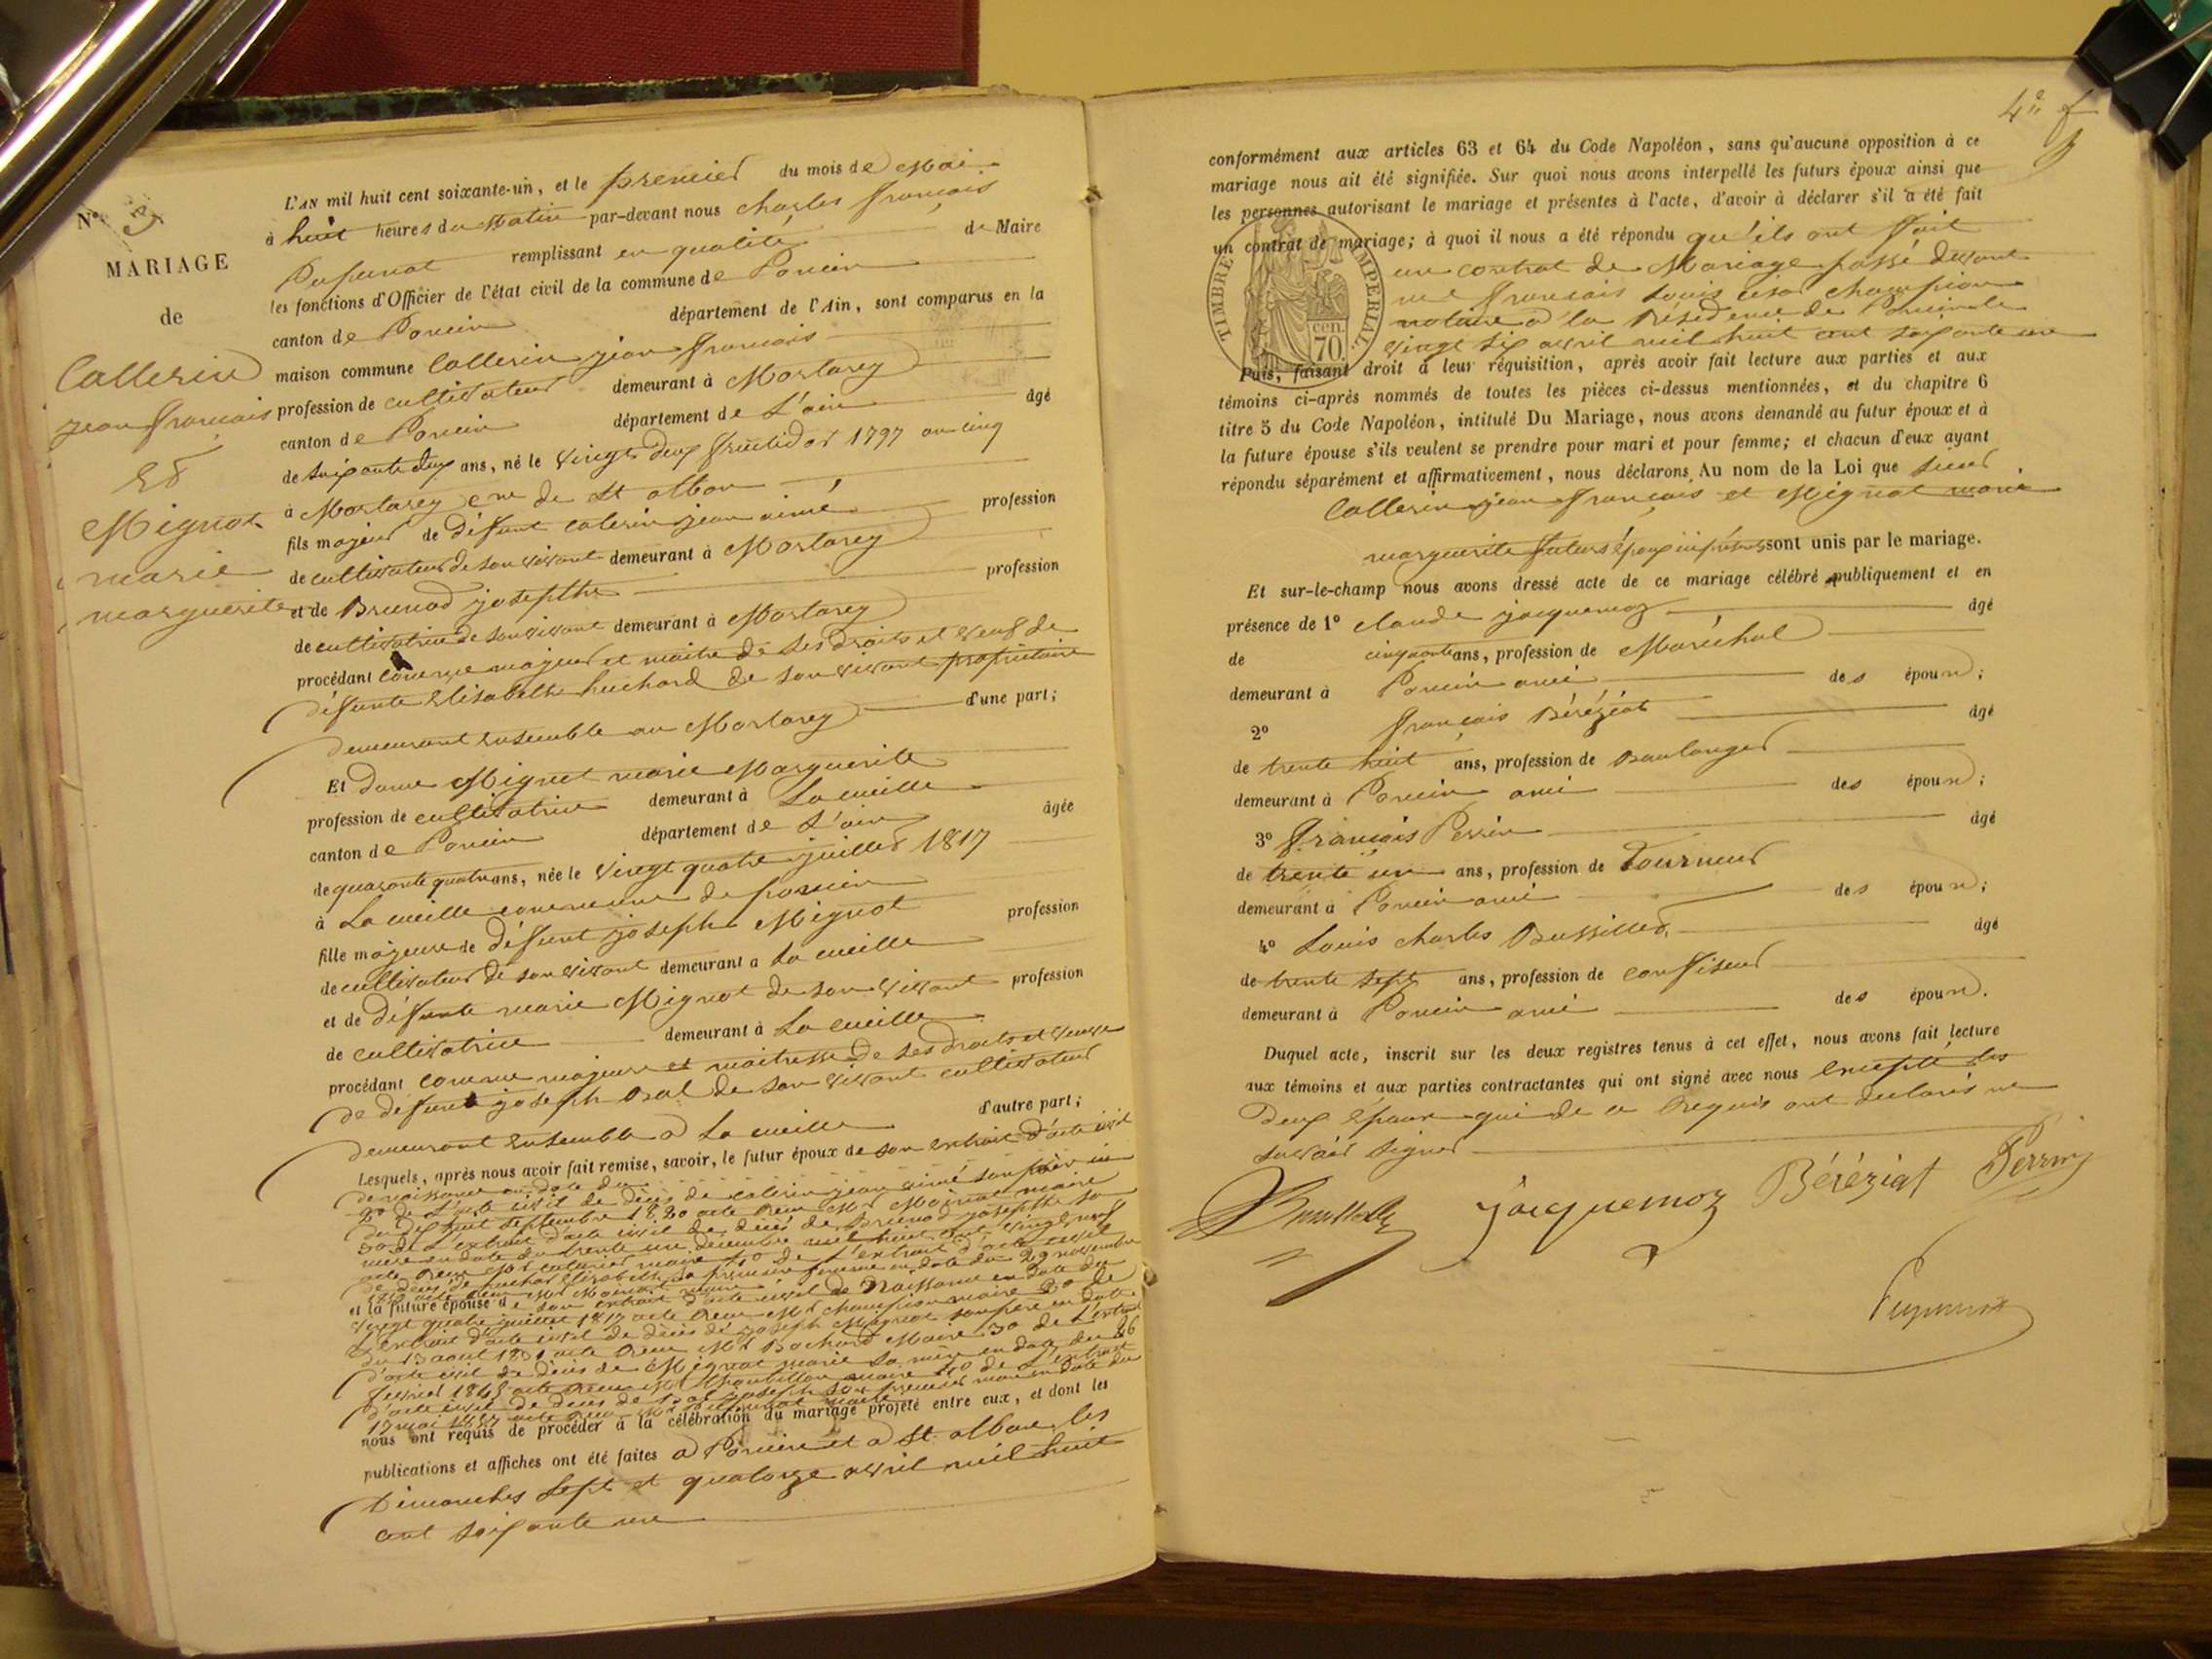 N° 5
MARIAGE
de
Collerin
jean françois
Et
Mignot
marie
marguerite
L'AN mil huit cent soixante-un, et le premier du mois de Mai
à huit heures du matin par-devant nous charles françois
remplissant en qualité de Maire
les fonctions d'Officier de l'état civil de la commune de Poncin
canton de Poncin département de l'Ain, sont comparus en la
maison commune Collerin jean françois
profession de cultivateur demeurant à Mortarey
canton de Poncin département de L'ain âgé
de soixante deux ans, né le vingt deux fructidor 1797 an cinq
à Mortarey cne de St alban
fils majeur de défunt Colerin jean aimé profession
de cultivateur de son vivant demeurant à Mortarey
et de Brunod josepthe profession
de cultivatrice de son vivant demeurant à Mortarey
procédant comme majeur et maitre de ses droits et veuf de
défunte Elisabethe huchard de son vivant propriétaire
demeurant ensemble au Mortarey d'une part;
Et dame Mignot marie Marguerite
profession de cultivatrice demeurant à La cueille
canton de Poncin département de L'ain âgée
de quarante quatre ans, née le vingt quatre juillet 1817
à La cueille commune de poncin
fille majeure de défunt joseph Mignot profession
de cultivateur de son vivant demeurant a La cueille
et de défunte marie Mignot de son vivant profession
de cultivatrice demeurant à La cueille
procédant comme majeure et maitresse de ses droits et veuve
de défunt joseph Bal de son vivant cultivateur
demeurant ensemble a La cueille d'autre part;
Lesquels, après nous avoir fait remise, savoir, le futur époux de son extrait d'acte civil
de naissance en date du
2° de L'acte civil de décès de Colerin jean aimé son père en
du dix huit septembre 1820 acte reçu Mr Moirat maire
3° de L'extrait d'acte civil de décès de Brunod josepthe sa
mere en date du trente un décembre mil huit cent vingt neuf
acte reçu Mr maire 4° de L'extrait d'acte civil
de décès de huchar Elizabeth sa première femme en date du 29 novembre
acte reçu Mr maire
et la future épouse de son extrait d'acte civil de Naissance en date du
vingt quatre juillet 1817 acte reçu Mr champion maire 2° de
L'extrait d'acte civil de décès de joseph Mignot son père en date
du 13 aout acte reçu Mr Bochard Maire 3° de L'extrait
d'acte civil de décès de Mignot marie sa mère en date du 26
février acte reçu Mr maire 4° de L'extrait
d'acte civil de décès de Bal joseph son premier mari en date du
17 mai acte reçu Mr maire
nous ont requis de procéder à la célébration du mariage projeté entre eux, et dont les
publications et affiches ont été faites a Poncin et a St alban les
Dimanches sept et quatorze avril mil huit
cent soixante un
conformément aux articles 63 et 64 du Code Napoléon, sans qu'aucune opposition à ce
mariage nous ait été signifiée. Sur quoi nous avons interpellé les futurs époux ainsi que
les personnes autorisant le mariage et présentes à l'acte, d'avoir à déclarer s'il a été fait
un contrat de mariage; à quoi il nous a été répondu qu'ils ont fait
un contrat de Mariage passé devant
me francais Louis césar champion
notaire a la Résidence de Poncin le
vingt six avril mil huit cent soixante un
TIMBRE IMPERIAL
cen.
70.
Puis, faisant droit à leur réquisition, après avoir fait lecture aux parties et aux
témoins ci-après nommés de toutes les pièces ci-dessus mentionnées, et du chapitre 6
titre 5 du Code Napoléon, intitulé Du Mariage, nous avons demandé au futur époux et à
la future épouse s'ils veulent se prendre pour mari et pour femme; et chacun d'eux ayant
répondu séparément et affirmativement, nous déclarons Au nom de la Loi que sieur
Collerin jean françois et Mignot marie
marguerite futurs époux ci présents sont unis par le mariage.
Et sur-le-champ nous avons dressé acte de ce mariage célébré publiquement et en
présence de 1° claude jacquemoz âgé
de cinquante ans, profession de Maréchal
demeurant à Poncin ami des époux;
2° françois Béréziat âgé
de trente huit ans, profession de Boulanger
demeurant à Poncin ami des époux;
3° françois Perrin âgé
de trente un ans, profession de Tourneur
demeurant à Poncin ami des époux;
4° Louis charles Bussillet âgé
de trente sept ans, profession de confiseur
demeurant à Poncin ami des époux.
Duquel acte, inscrit sur les deux registres tenus à cet effet, nous avons fait lecture
aux témoins et aux parties contractantes qui ont signé avec nous excepté les
deux époux qui de ce requis ont declarés ne
savoir signer
jacquemoz Béréziat Perrin